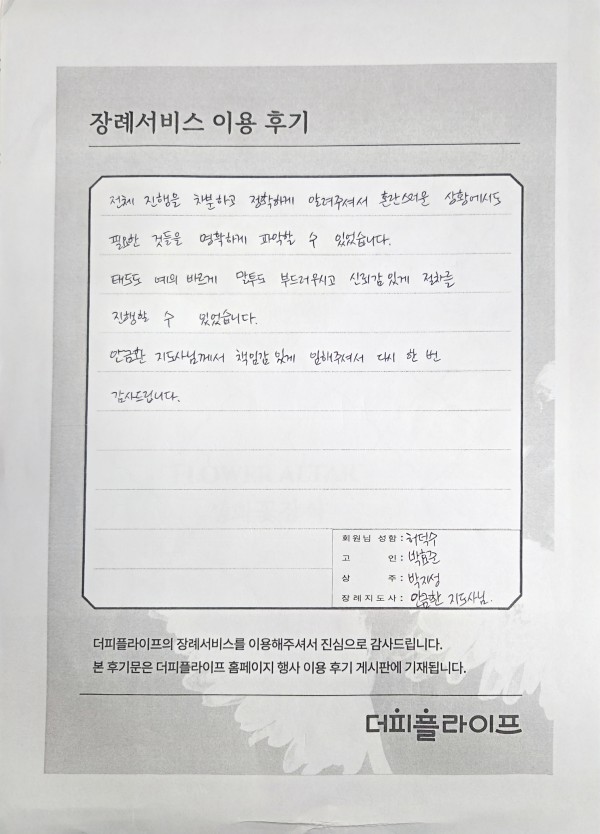 장례서비스 이용 후기
전체 진행을 차분하고 정확하게 알려주셔서 혼란스러운 상황에서도
필요한 것들을 명확하게 파악할 수 있었습니다.
태도도 예의 바르게 말투도 부드러우시고 신뢰감있게 절차를
진행할 수 있었습니다.
안금환 지도사님께서 책임감 있게 임해주셔서 다시 한 번
감사드립니다.
회원님 성함 : 허덕수
고 인 :
상 주 : 박지성
장례지도사 : 안금환 지도사님.
더피플라이프의 장례서비스를 이용해주셔서 진심으로 감사드립니다.
본 후기문은 더피플라이프 홈페이지 행사 이용 후기 게시판에 기재됩니다.
더피플라이프